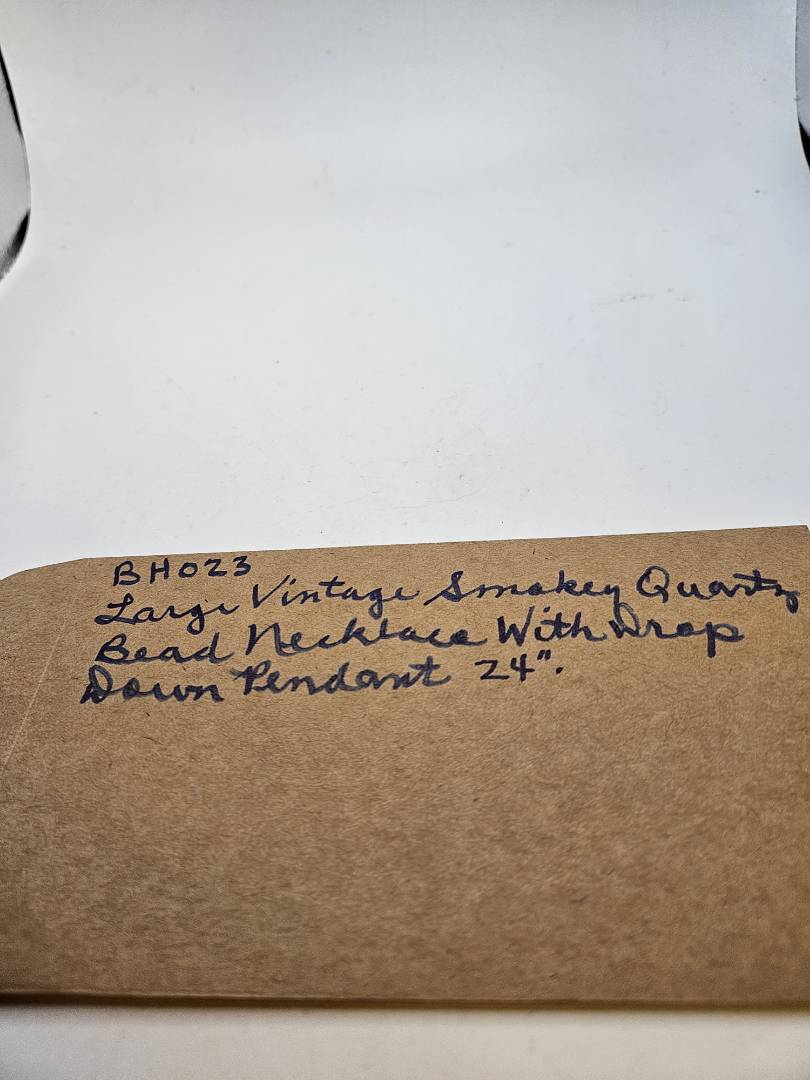 BH023
Large Vintage Smokey Quartz
Bead Necklace With Drop
Down Pendant 24".